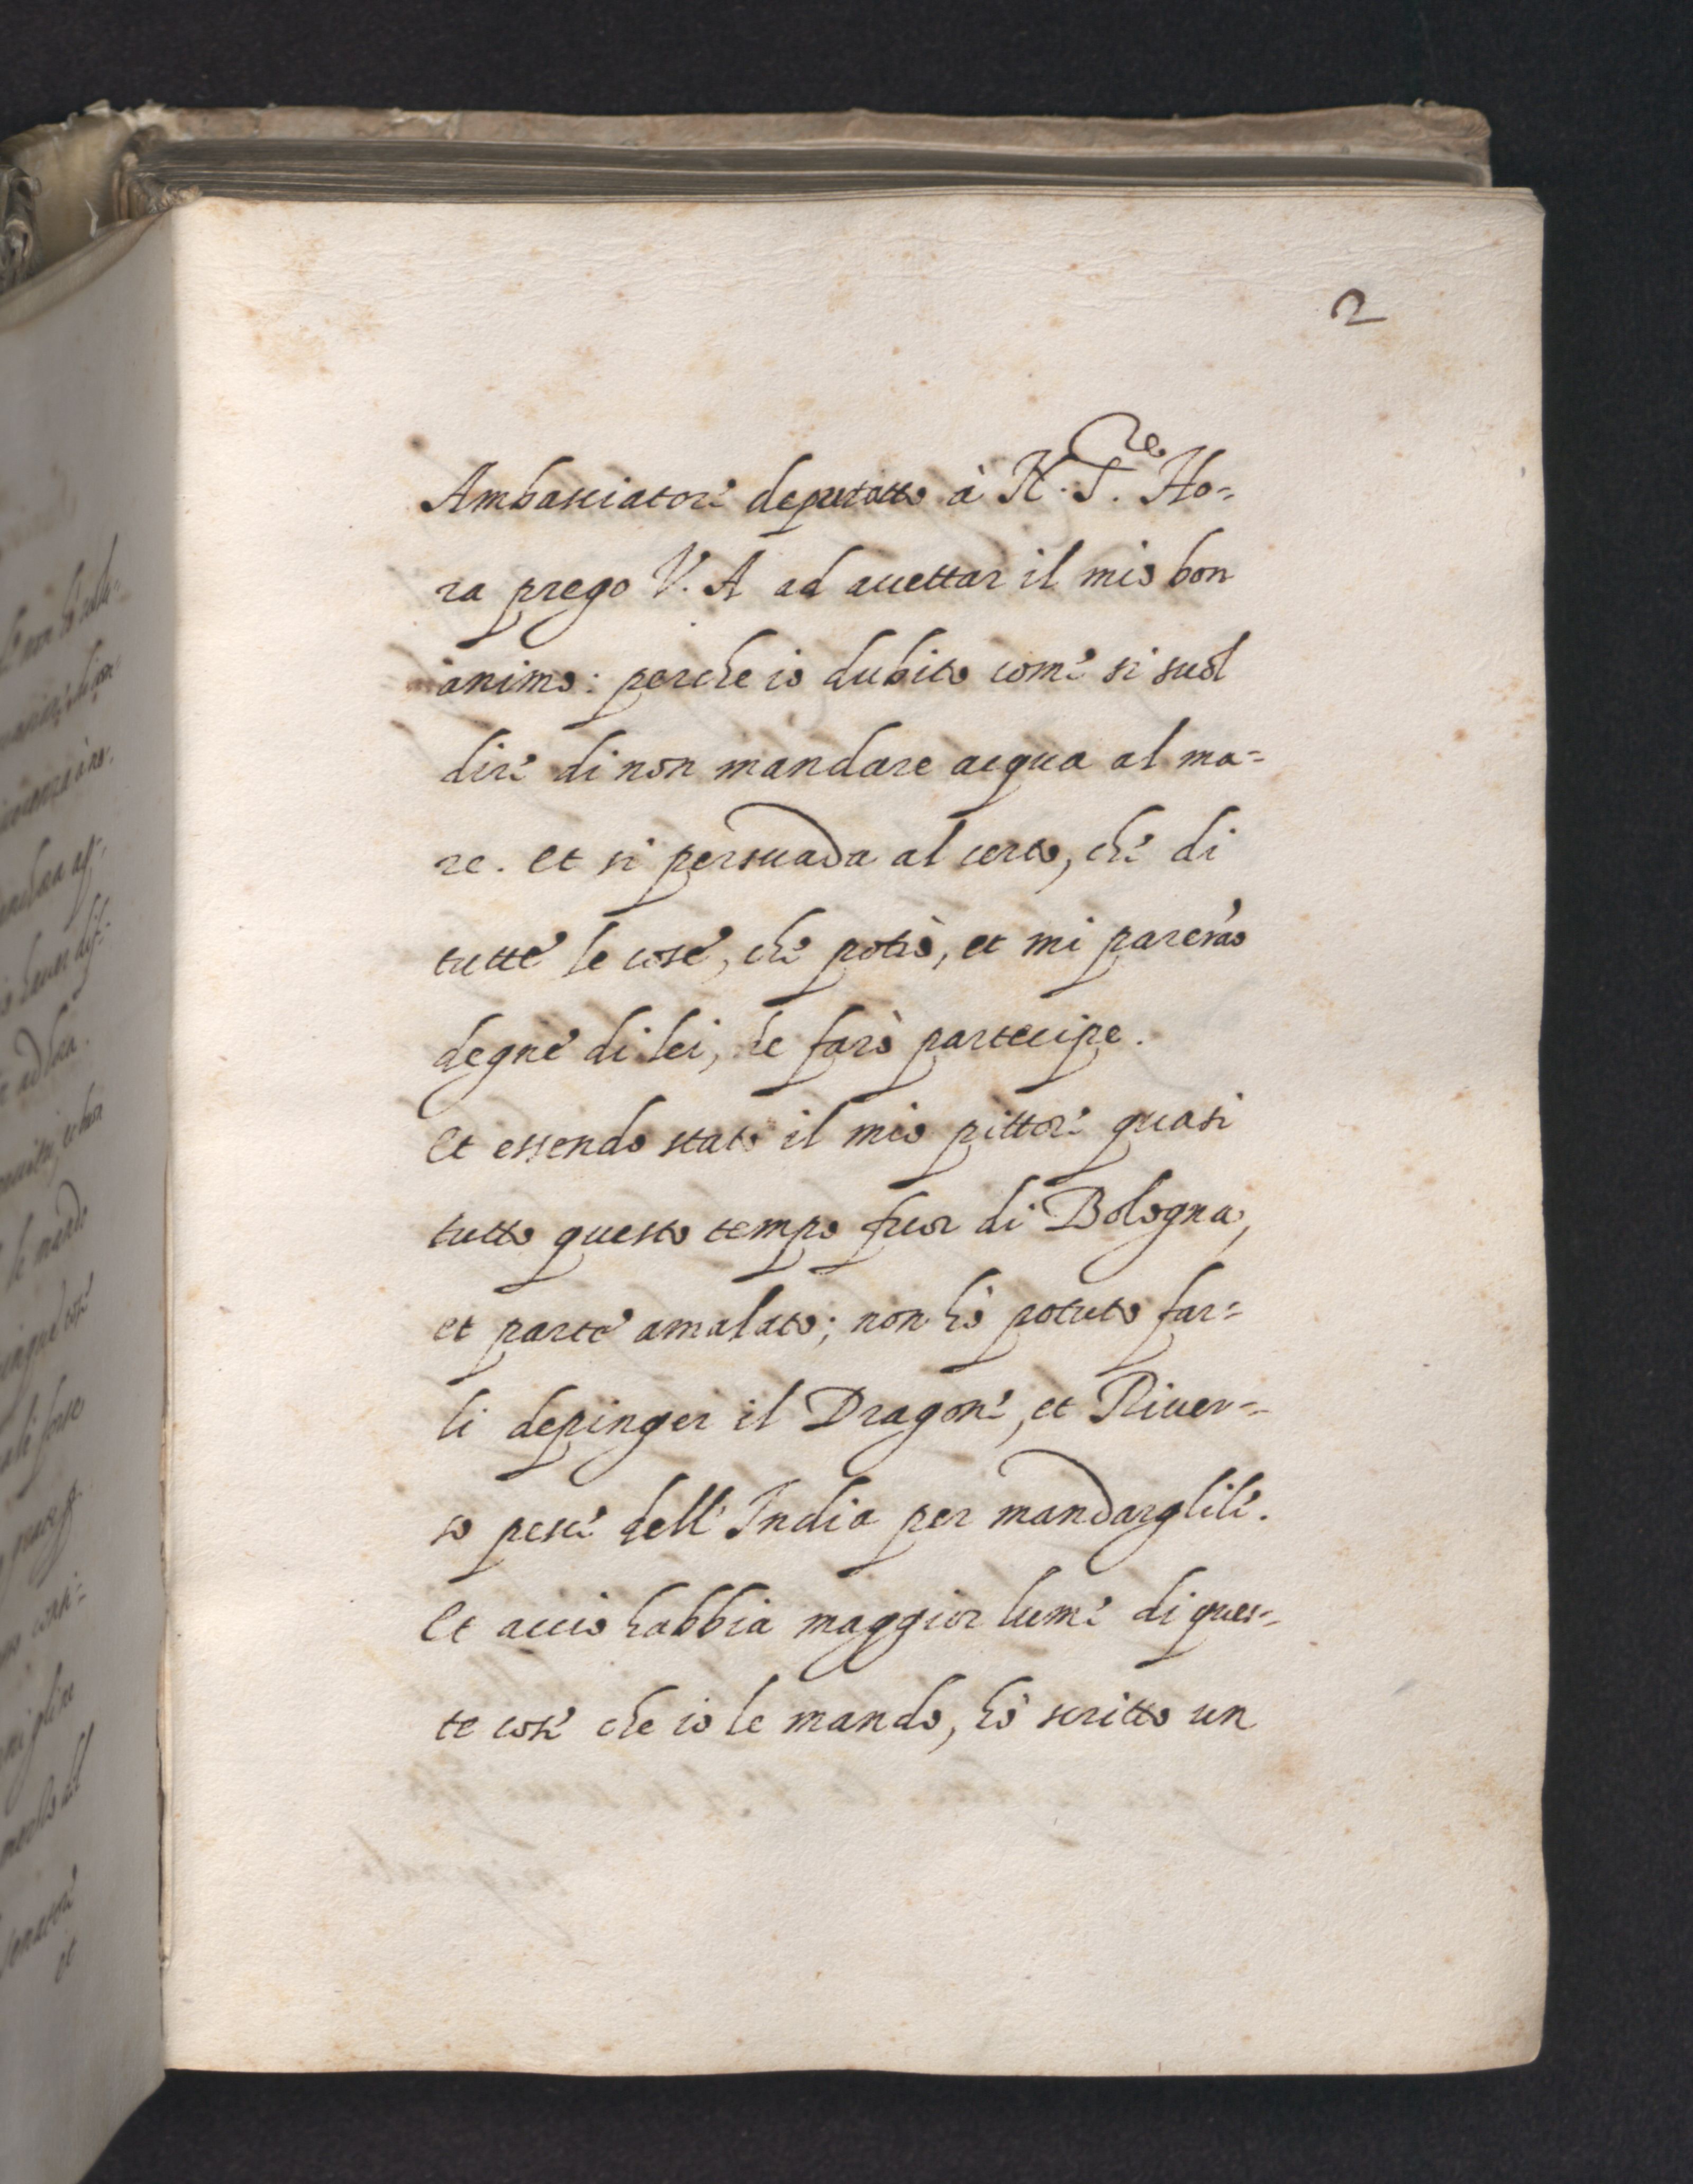 2
Ambasciatore deputato à N. S.re Ho=
ra prego V. A ad accettar il mio bon
animo: perche io dubito come si suol
dire di non mandare acqua al ma=
re. et si persuada al certo, che di
tutte le cose, che potrò, et mi parerãо
degne di lei, le farò partecipe.
Et essendo stato il mio pittore quasi
tutto questo tempo fuor di Bologna,
et parte amalato; non hò potuto far=
li depinger il Dragone, et River=
so pesce dell'India per mandarglili.
Et acciò habbia maggior lume di ques=
te cose che io le mando, hò scritto un